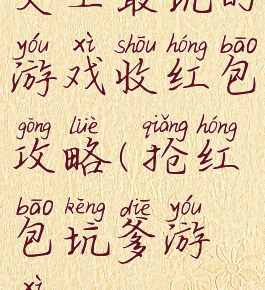 史上最坑的
yóu xì shōu hóng bāo
游戏收红包
gōng lüè qiǎng hóng
攻略(抢红
bāo kēng diē yóu
包坑爹游
xì